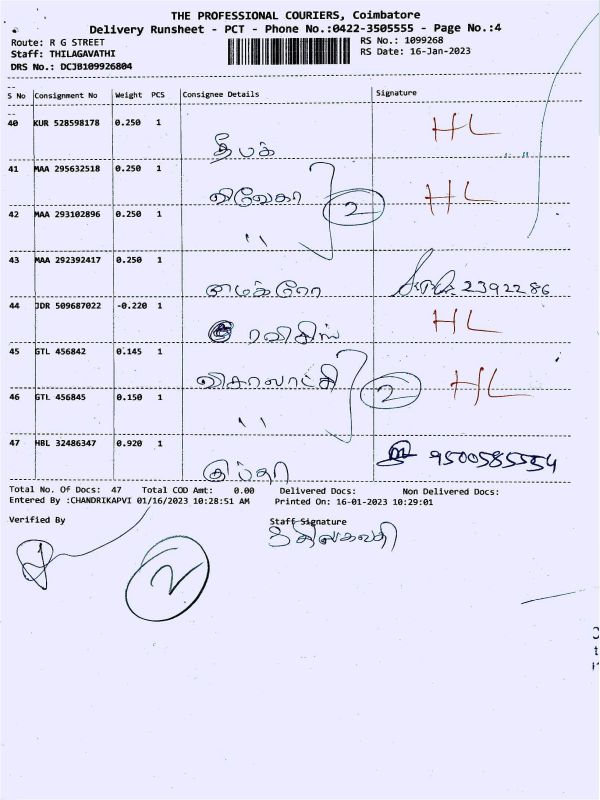 THE PROFESSIONAL COURIERS, Coimbatore
Delivery Runsheet - PCT - Phone No.:0422-3505555 - Page No.:4
Route: R G STREET RS No.: 1099268
Staff: THILAGAVATHI RS Date: 16-Jan-2023
DRS No.: DCJB109926804
S No Consignment No Weight PCS Consignee Details Signature
40 KUR 528598178 0.250 1 தீபக் HL
41 MAA 295632518 0.250 1 HL
42 MAA 293102896 0.250 1 " 2
43 MAA 292392417 0.250 1 2392286
44 JDR 509687022 -0.220 1 HL
45 GTL 456842 0.145 1 HL
46 GTL 456845 0.150 1 " 2
47 HBL 32486347 0.920 1 9500585554
Total No. Of Docs: 47 Total COD Amt: 0.00 Delivered Docs: Non Delivered Docs:
Entered By :CHANDRIKAPVI 01/16/2023 10:28:51 AM Printed On: 16-01-2023 10:29:01
Verified By Staff Signature
2